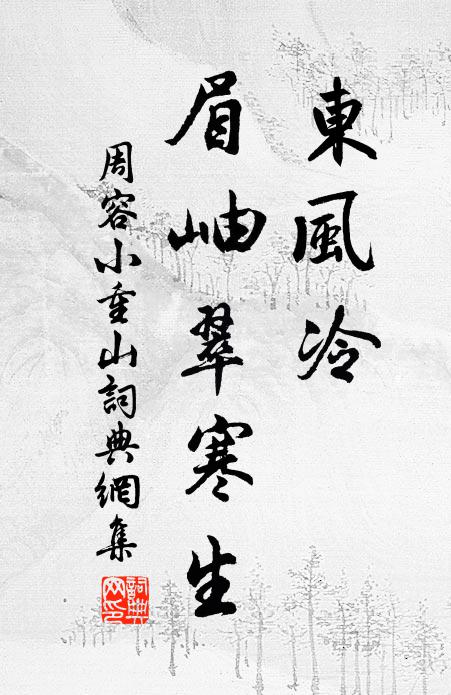 東風冷
眉岫翠寒生
周容小重山詞典網集
詞典网印